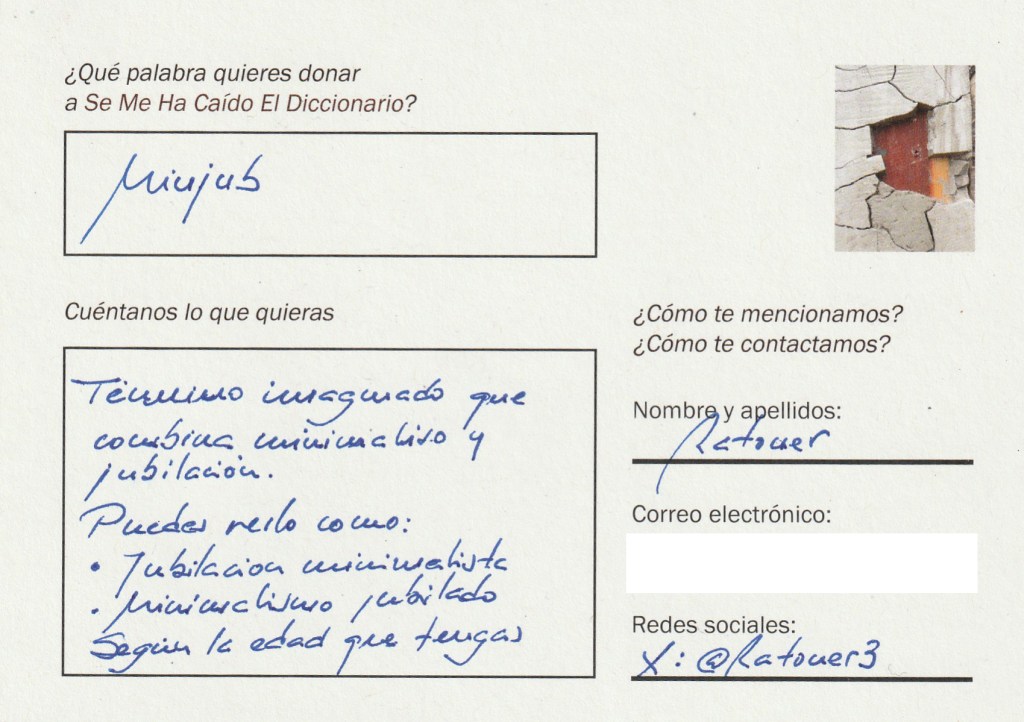 ¿Qué palabra quieres donar
a Se Me Ha Caído El Diccionario?
Minjub
Cuéntanos lo que quieras
Término imaginado que
combina minimaliso y
jubilación.
Puedes verlo como:
• Jubilacion minimalista
• Minimalismo jubilado
Según la edad que tengas
¿Cómo te mencionamos?
¿Cómo te contactamos?
Nombre y apellidos:
Ratoner
Correo electrónico:
Redes sociales:
X: @Ratoner3